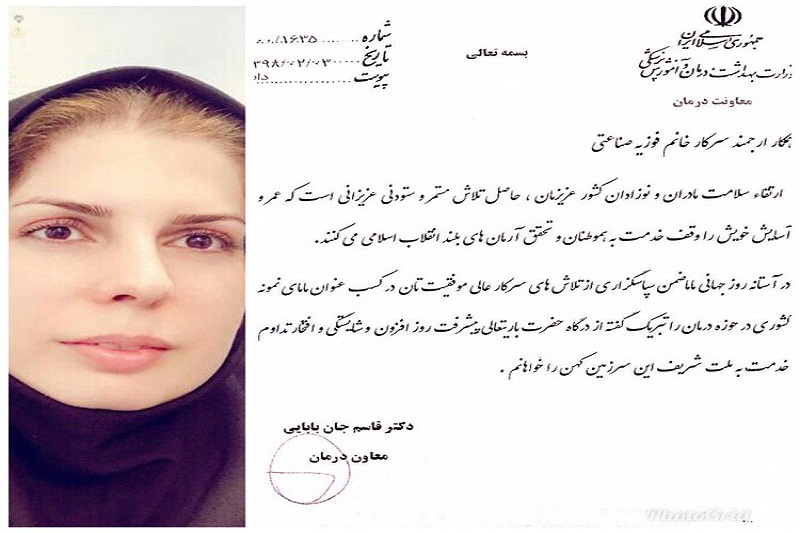 جمهوری اسلامی ایران
وزارت بهداشت، درمان و آموزش پزشکی
معاونت درمان
بسمه تعالی
شماره ۰۰/۱۶۳۵
تاریخ ۳۹۸/۰۲/۰۳
پیوست
همکار ارجمند سرکار خانم فوزیه صناعتی
ارتقاء سلامت مادران و نوزادان کشور عزیزمان ، حاصل تلاش مستمر و ستودنی عزیزانی است که عمر و
آسایش خویش را وقف خدمت به هموطنان و تحقق آرمان های بلند انقلاب اسلامی می کنند.
در آستانه روز جهانی ماما ضمن سپاسگزاری از تلاش های سرکار عالی موفقیت تان در کسب عنوان مامای نمونه
کشوری در حوزه درمان را تبریک گفته از درگاه حضرت باریتعالی پیشرفت روز افزون و شایستگی و افتخار تداوم
خدمت به ملت شریف این سرزمین کهن را خواهانم .
دکتر قاسم جان بابایی
معاون درمان
PhotoGrid